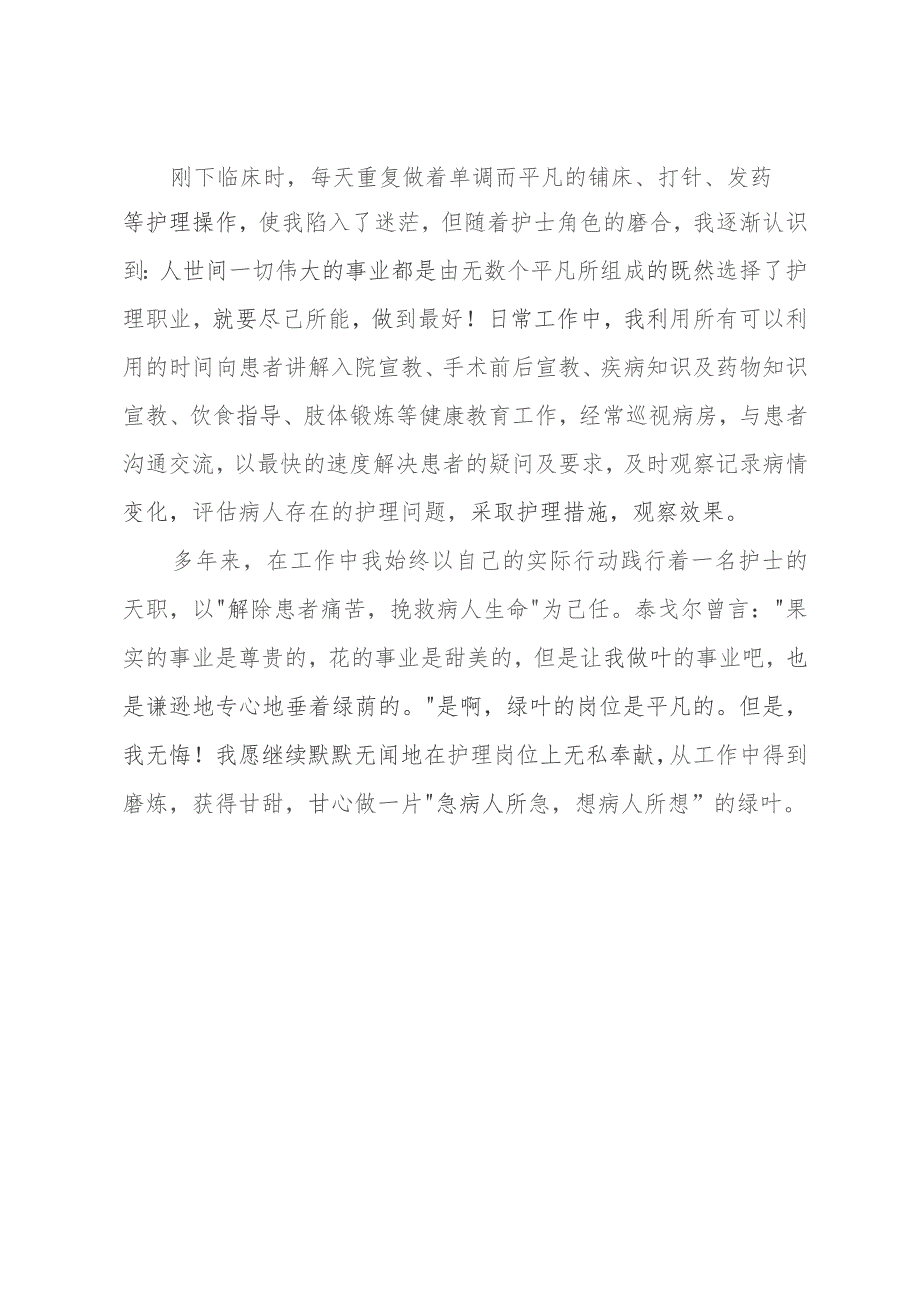 刚下临床时，每天重复做着单调而平凡的铺床、打针、发药
等护理操作，使我陷入了迷茫，但随着护士角色的磨合，我逐渐认识
到：人世间一切伟大的事业都是由无数个平凡所组成的既然选择了护
理职业，就要尽己所能，做到最好！日常工作中，我利用所有可以利
用的时间向患者讲解入院宣教、手术前后宣教、疾病知识及药物知识
宣教、饮食指导、肢体锻炼等健康教育工作，经常巡视病房，与患者
沟通交流，以最快的速度解决患者的疑问及要求，及时观察记录病情
变化，评估病人存在的护理问题，采取护理措施，观察效果。
多年来，在工作中我始终以自己的实际行动践行着一名护士的
天职，以"解除患者痛苦，挽救病人生命"为己任。泰戈尔曾言："果
实的事业是尊贵的，花的事业是甜美的，但是让我做叶的事业吧，也
是谦逊地专心地垂着绿荫的。"是啊，绿叶的岗位是平凡的。但是，
我无悔！我愿继续默默无闻地在护理岗位上无私奉献，从工作中得到
磨炼，获得甘甜，甘心做一片"急病人所急，想病人所想”的绿叶。